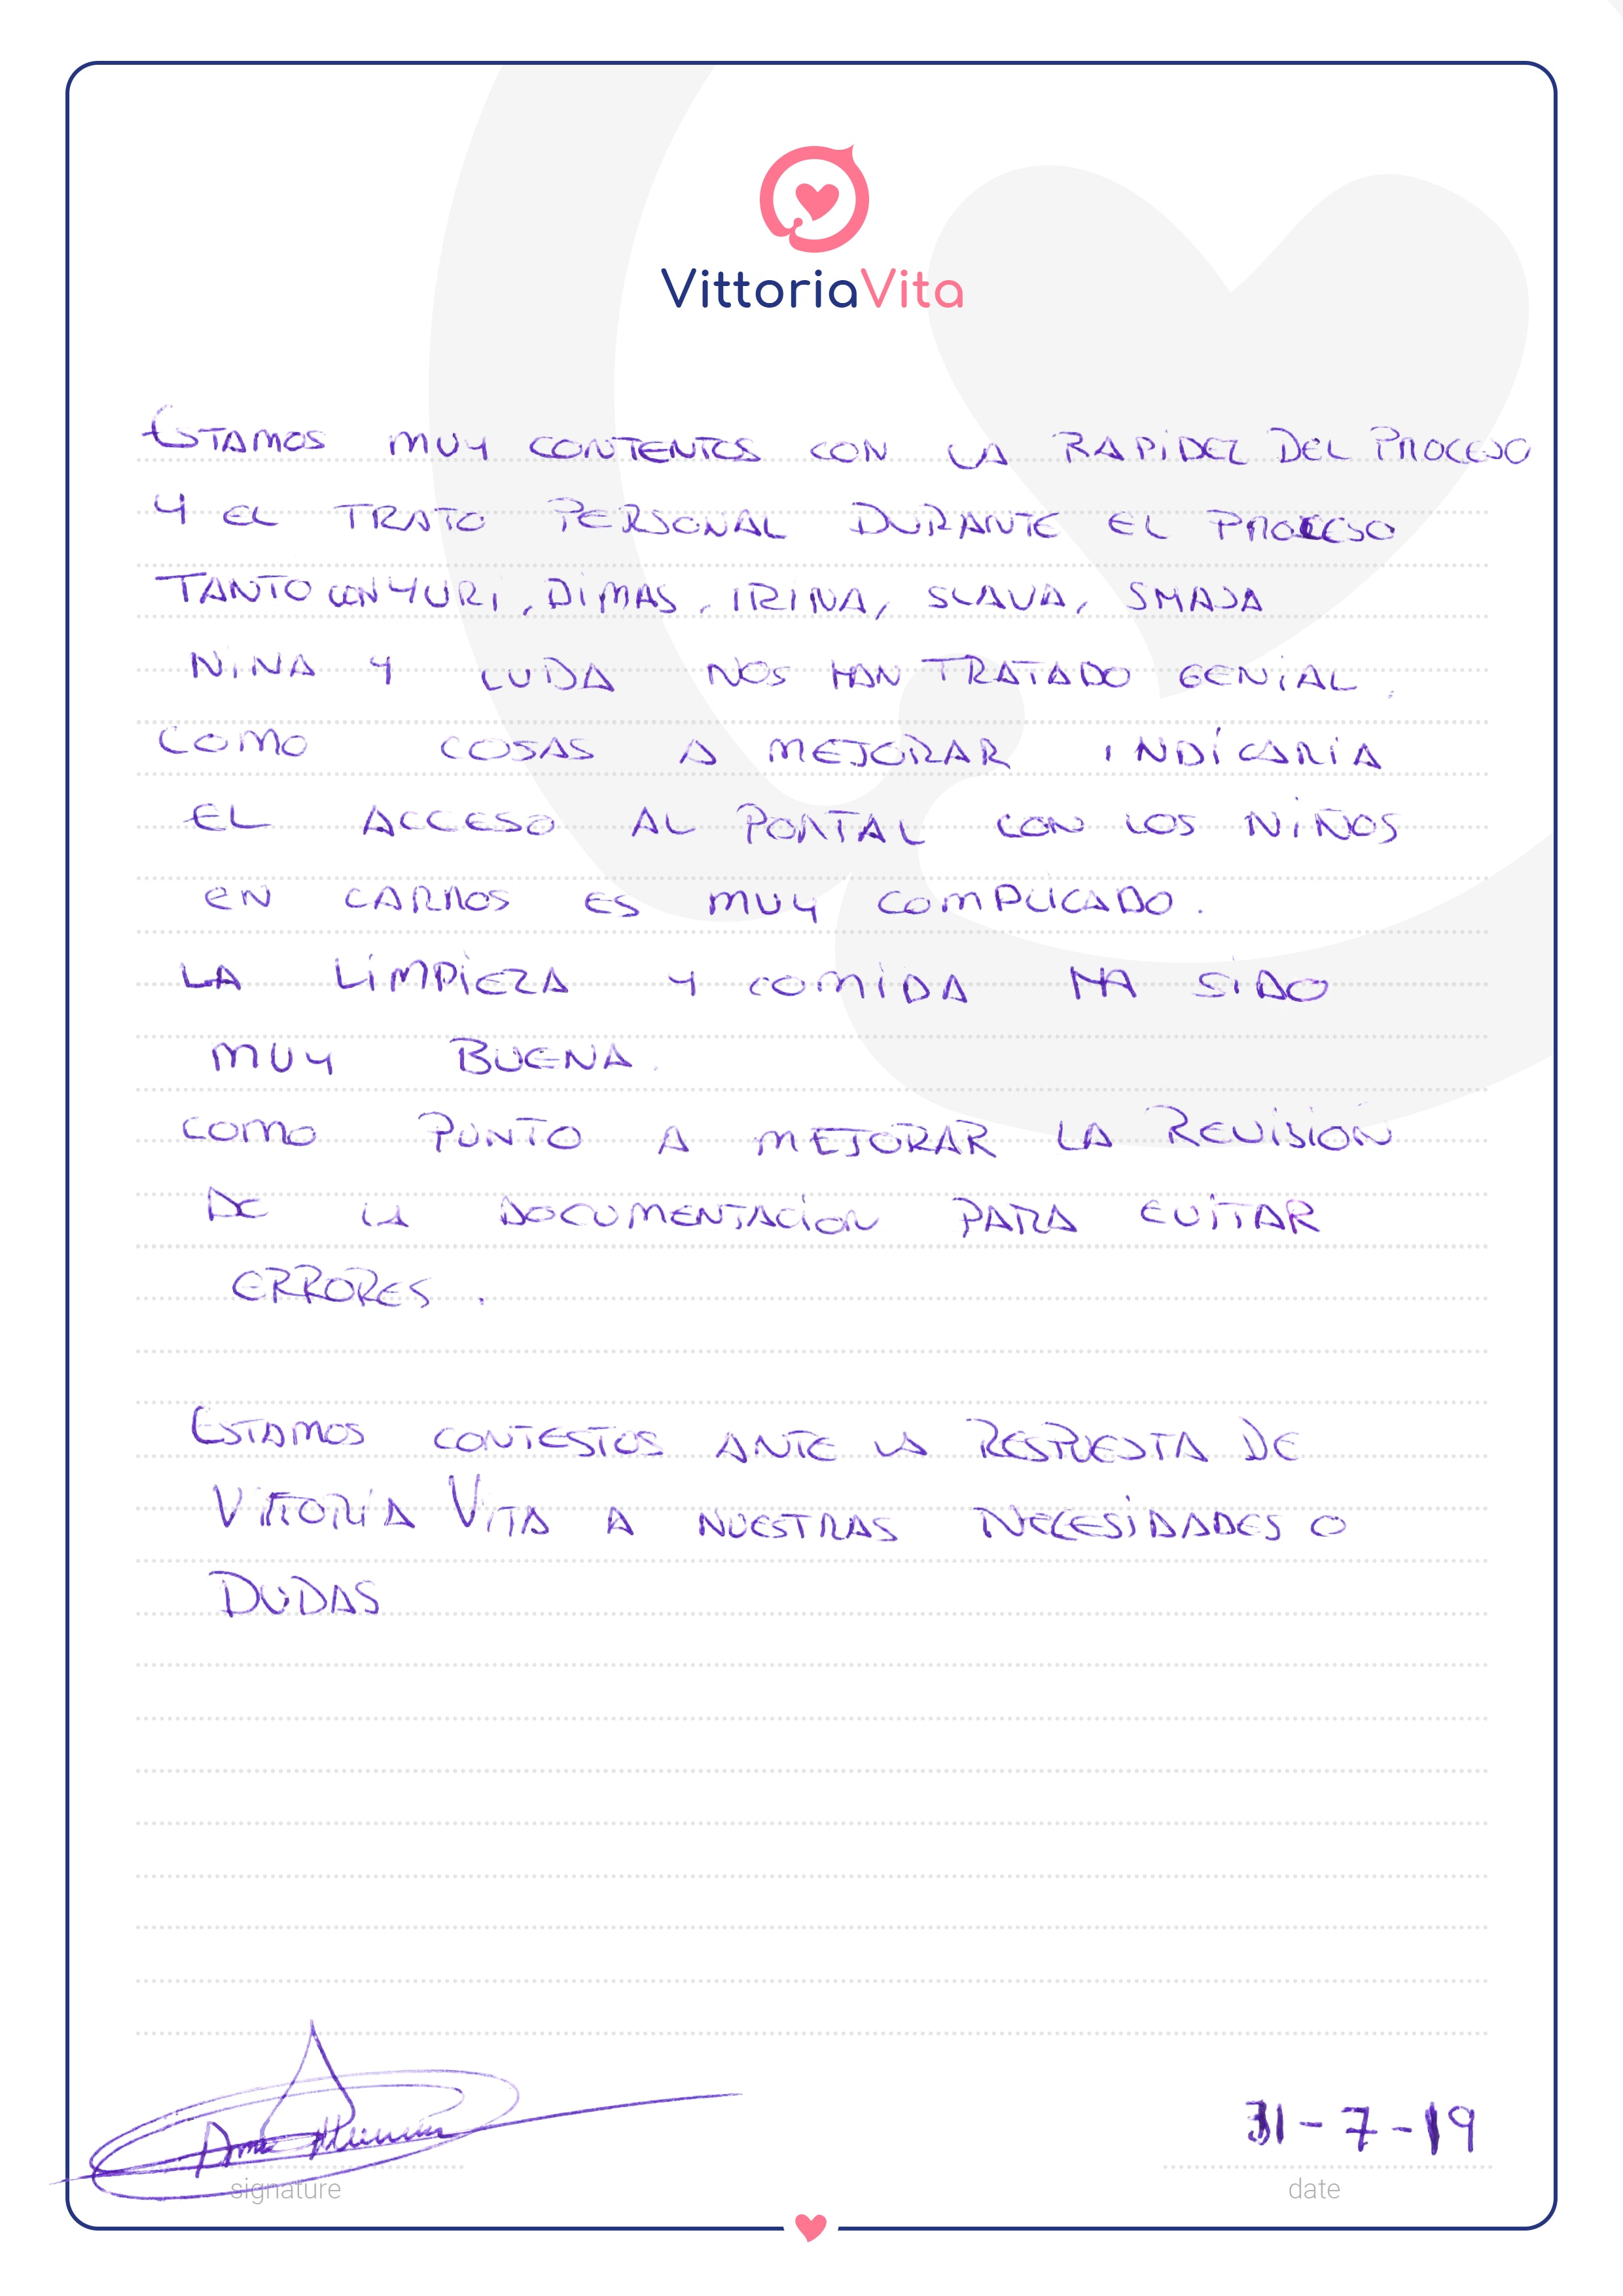 VittoriaVita
ESTAMOS MUY CONTENTOS CON LA RAPIDEZ DEL PROCESO
Y EL TRATO PERSONAL DURANTE EL PROCESO
TANTO CON YURI, DIMAS, IRINA, SLAVA, SMAJA
NINA Y LUDA NOS HAN TRATADO GENIAL.
COMO COSAS A MEJORAR INDICARIA
EL ACCESO AL PORTAL CON LOS NIÑOS
EN CARROS ES MUY COMPLICADO.
LA LIMPIEZA Y COMIDA HA SIDO
MUY BUENA.
COMO PUNTO A MEJORAR LA REVISIÓN
DE LA DOCUMENTACION PARA EVITAR
ERRORES.
ESTAMOS CONTESTOS ANTE LA RESPUESTA DE
VITTORIA VITA A NUESTRAS NECESIDADES O
DUDAS
31-7-19
signature
date